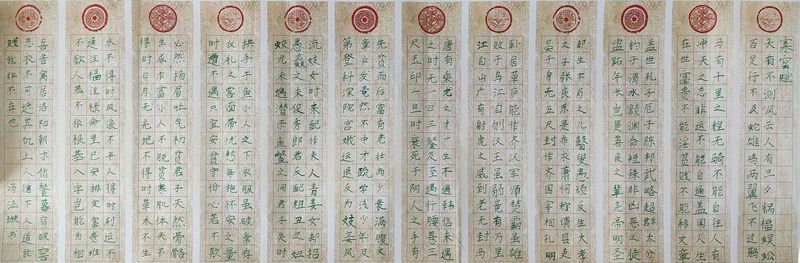 寒窑赋
天有不测风云人有旦夕祸福蜈蚣
百足行不及蛇雄鸡两翼飞不过鸦
马有千里之程无骑不能自往人有
冲天之志非运不能自通盖闻人生
在世富贵不能淫贫贱不能移文章
盖世孔子厄于陈邦武略超群太公
钓于渭水颜渊命短殊非凶恶之徒
盗跖年长岂是善良之辈尧帝明圣
却生不肖之儿瞽叟愚顽反生大孝
之子张良原是布衣萧何称谓县吏
晏子身无五尺封作齐国宰相孔明
卧居草庐能作汉军师楚霸虽雄
败于乌江自刎汉王虽弱竟有万里
江山广有射虎之威到老无封冯
唐有乘龙之才一生不遇韩信未遇
之时无一日三餐及至遇行腰悬三
尺玉印一旦时衰死于阴人之手有
先贫而白富有老壮而少衰满腹文
章白发竟然不中才疏学浅少年及
第登科深院宫娥运退反为妓妾风
流妓女时来配作夫人青春美女却招
愚蠢之夫俊秀郎君反配粗丑之妇
蛟龙未遇潜于鱼鳖之间君子失时
拱手于小人之下衣服虽破常存
仪礼之容面带忧愁每抱怀安之量
时遭不遇只宜安贫守份心若不欺
必然扬眉吐气初贫君子天然骨骼
生成乍富小人不脱贫寒肌体天不
得时日月无光地不得时草木不生
水不得时风浪不平人不得时利运不
通注福注禄命里已安排定富贵谁
不欲人若不依根基八字岂能为相
吾昔寓居洛阳朝求僧餐暮宿破窑
思衣不可遮其饥上人憎下人道我
贱我非不弃也